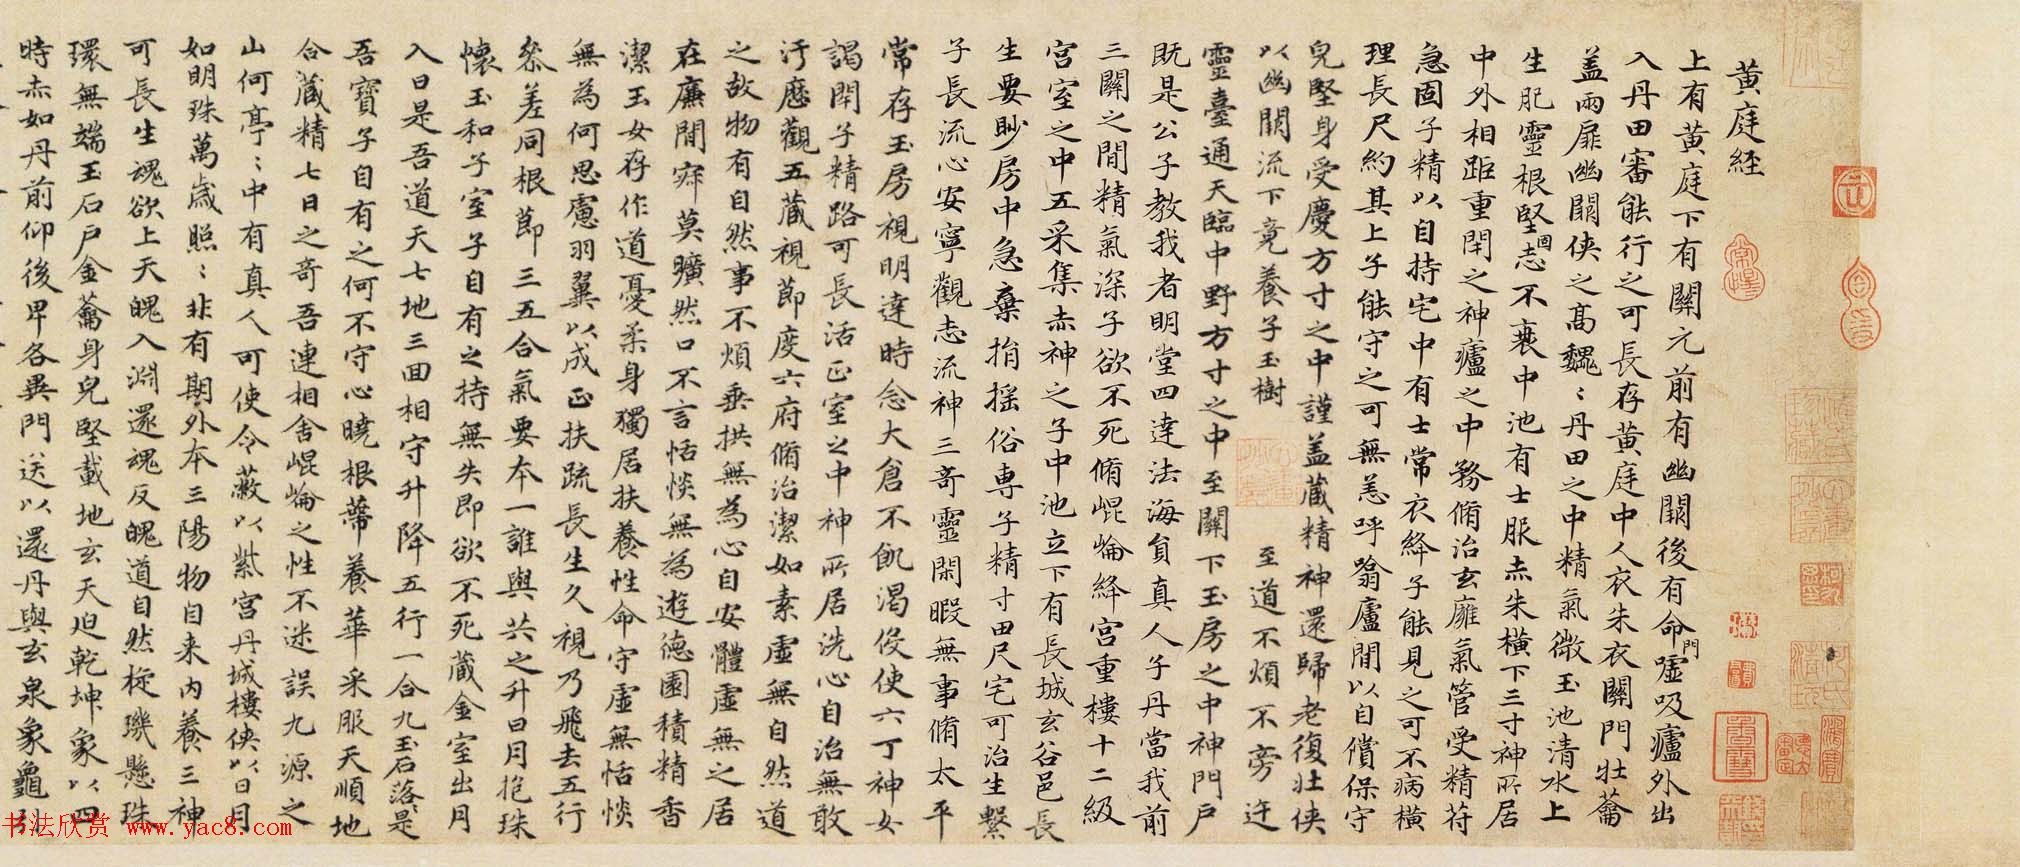 黃庭經
上有黃庭下有關元前有幽闕後有命門噓吸廬外出
入丹田審能行之可長存黃庭中人衣朱衣關門壯蘥
盖兩扉幽闕俠之高巍〻丹田之中精氣微玉池清水上
生肥靈根堅固志不衰中池有士服赤朱橫下三寸神所居
中外相距重閇之神廬之中務脩治玄廱氣管受精苻
急固子精以自持宅中有士常衣絳子能見之可不病橫
理長尺約其上子能守之可無恙呼噏廬間以自償保守
皃堅身受慶方寸之中謹盖藏精神還歸老復壯俠
以幽闕流下竟養子玉樹 至道不煩不旁迕
靈臺通天臨中野方寸之中至關下玉房之中神門戶
既是公子教我者明堂四達法海負真人子丹當我前
三關之間精氣深子欲不死脩崐崘絳宮重樓十二級
宮室之中五采集赤神之子中池立下有長城玄谷邑長
生要眇房中急棄捐揺俗専子精寸田尺宅可治生繫
子長流心安寧觀志流神三奇靈閑暇無事脩太平
常存玉房視明達時念大倉不飢渴役使六丁神女
謁閇子精路可長活正室之中神所居洗心自治無敢
汙歷觀五藏視節度六府脩治潔如素虛無自然道
之故物有自然事不煩垂拱無為心自安體虛無之居
在廉間寂莫曠然口不言恬惔無為遊德園積精香
潔玉女存作道憂柔身獨居扶養性命守虛無恬惔
無為何思慮羽翼以成正扶疏長生久視乃飛去五行
叅差同根節三五合氣要本一誰與共之升日月抱珠
懷玉和子室子自有之持無失即欲不死藏金室出月
入日是吾道天七地三回相守升降五行一合九玉石落是
吾寶子自有之何不守心曉根蔕養華采服天順地
合藏精七日之奇吾連相舍崐崘之性不迷誤九源之
山何亭〻中有真人可使令蔽以紫宮丹城樓俠以日月
如明珠萬歲照〻非有期外本三陽物自来內養三神
可長生魂欲上天魄入淵還魂反魄道自然㨕璣懸珠
環無端玉石戶金蘥身皃堅載地玄天迫乾坤象以四
時赤如丹前仰後卑各異門送以還丹與玄泉象龜引
书法欣赏 www.yac8.com